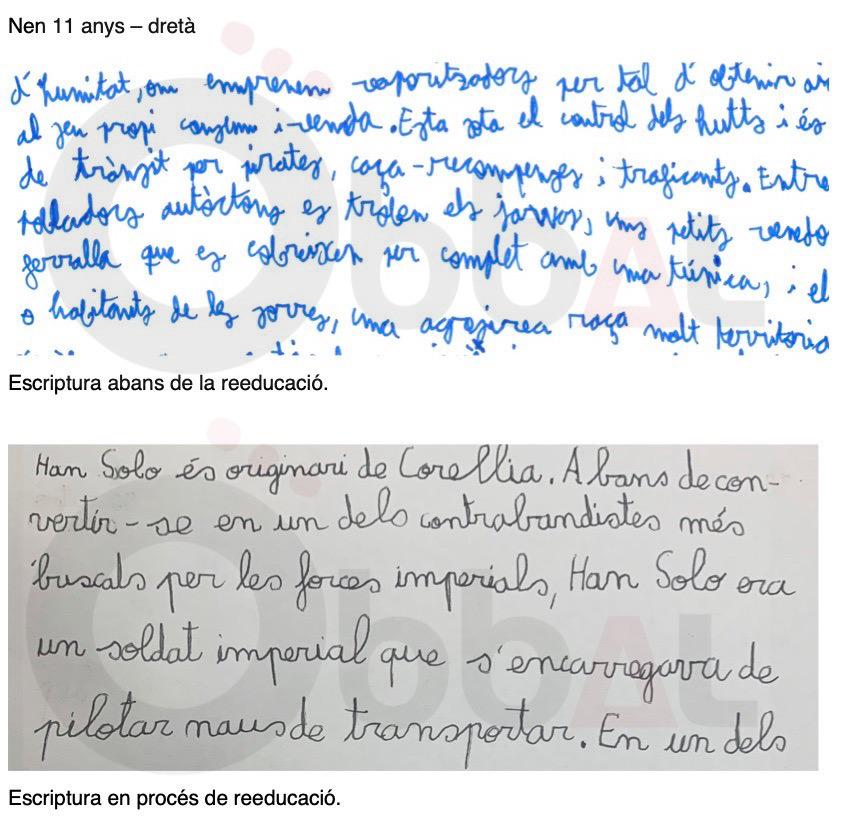 Nen 11 anys – dretà
d'humitat, on emprenem vaporitzadors per tal d'obtenir ai
al seu propi consum i venda. Esta sota el control dels hutts i és
de trànsit per pirates, caça-recompenses i traficants. Entre
pobladors autòctons es troben els jawas, uns petits vendo
ferralla que es cobreixen per complet amb una túnica, i el
o habitants de les sorres, una agressiva raça molt territoria
Escriptura abans de la reeducació.
Han Solo és originari de Corellia. Abans de con-
vertir-se en un dels contrabandistes més
buscats per les forces imperials, Han Solo era
un soldat imperial que s'encarregava de
pilotar naus de transportar. En un dels
Escriptura en procés de reeducació.
ObbAL
ObbAL